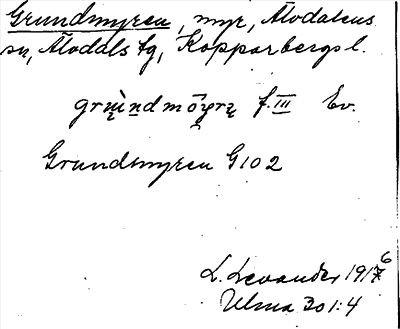 Grundmyren, myr, Älvdalens
sn, Älvdals tg, Kopparbergs l.
grųùndmö̀yrę f. III Ev.
Grundmyren G102
L. Levander 1916
Ulma 301:4